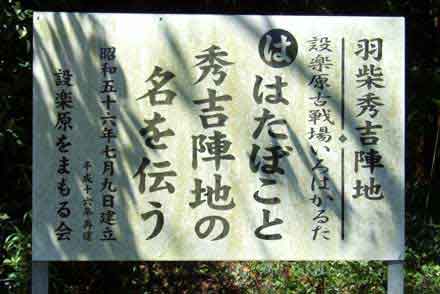 羽柴秀吉陣地
設楽原古戦場いろはかるた
は はたぼこと
秀吉陣地の
名を伝う
昭和五十六年七月九日建立
平成十六年再建
設楽原をまもる会